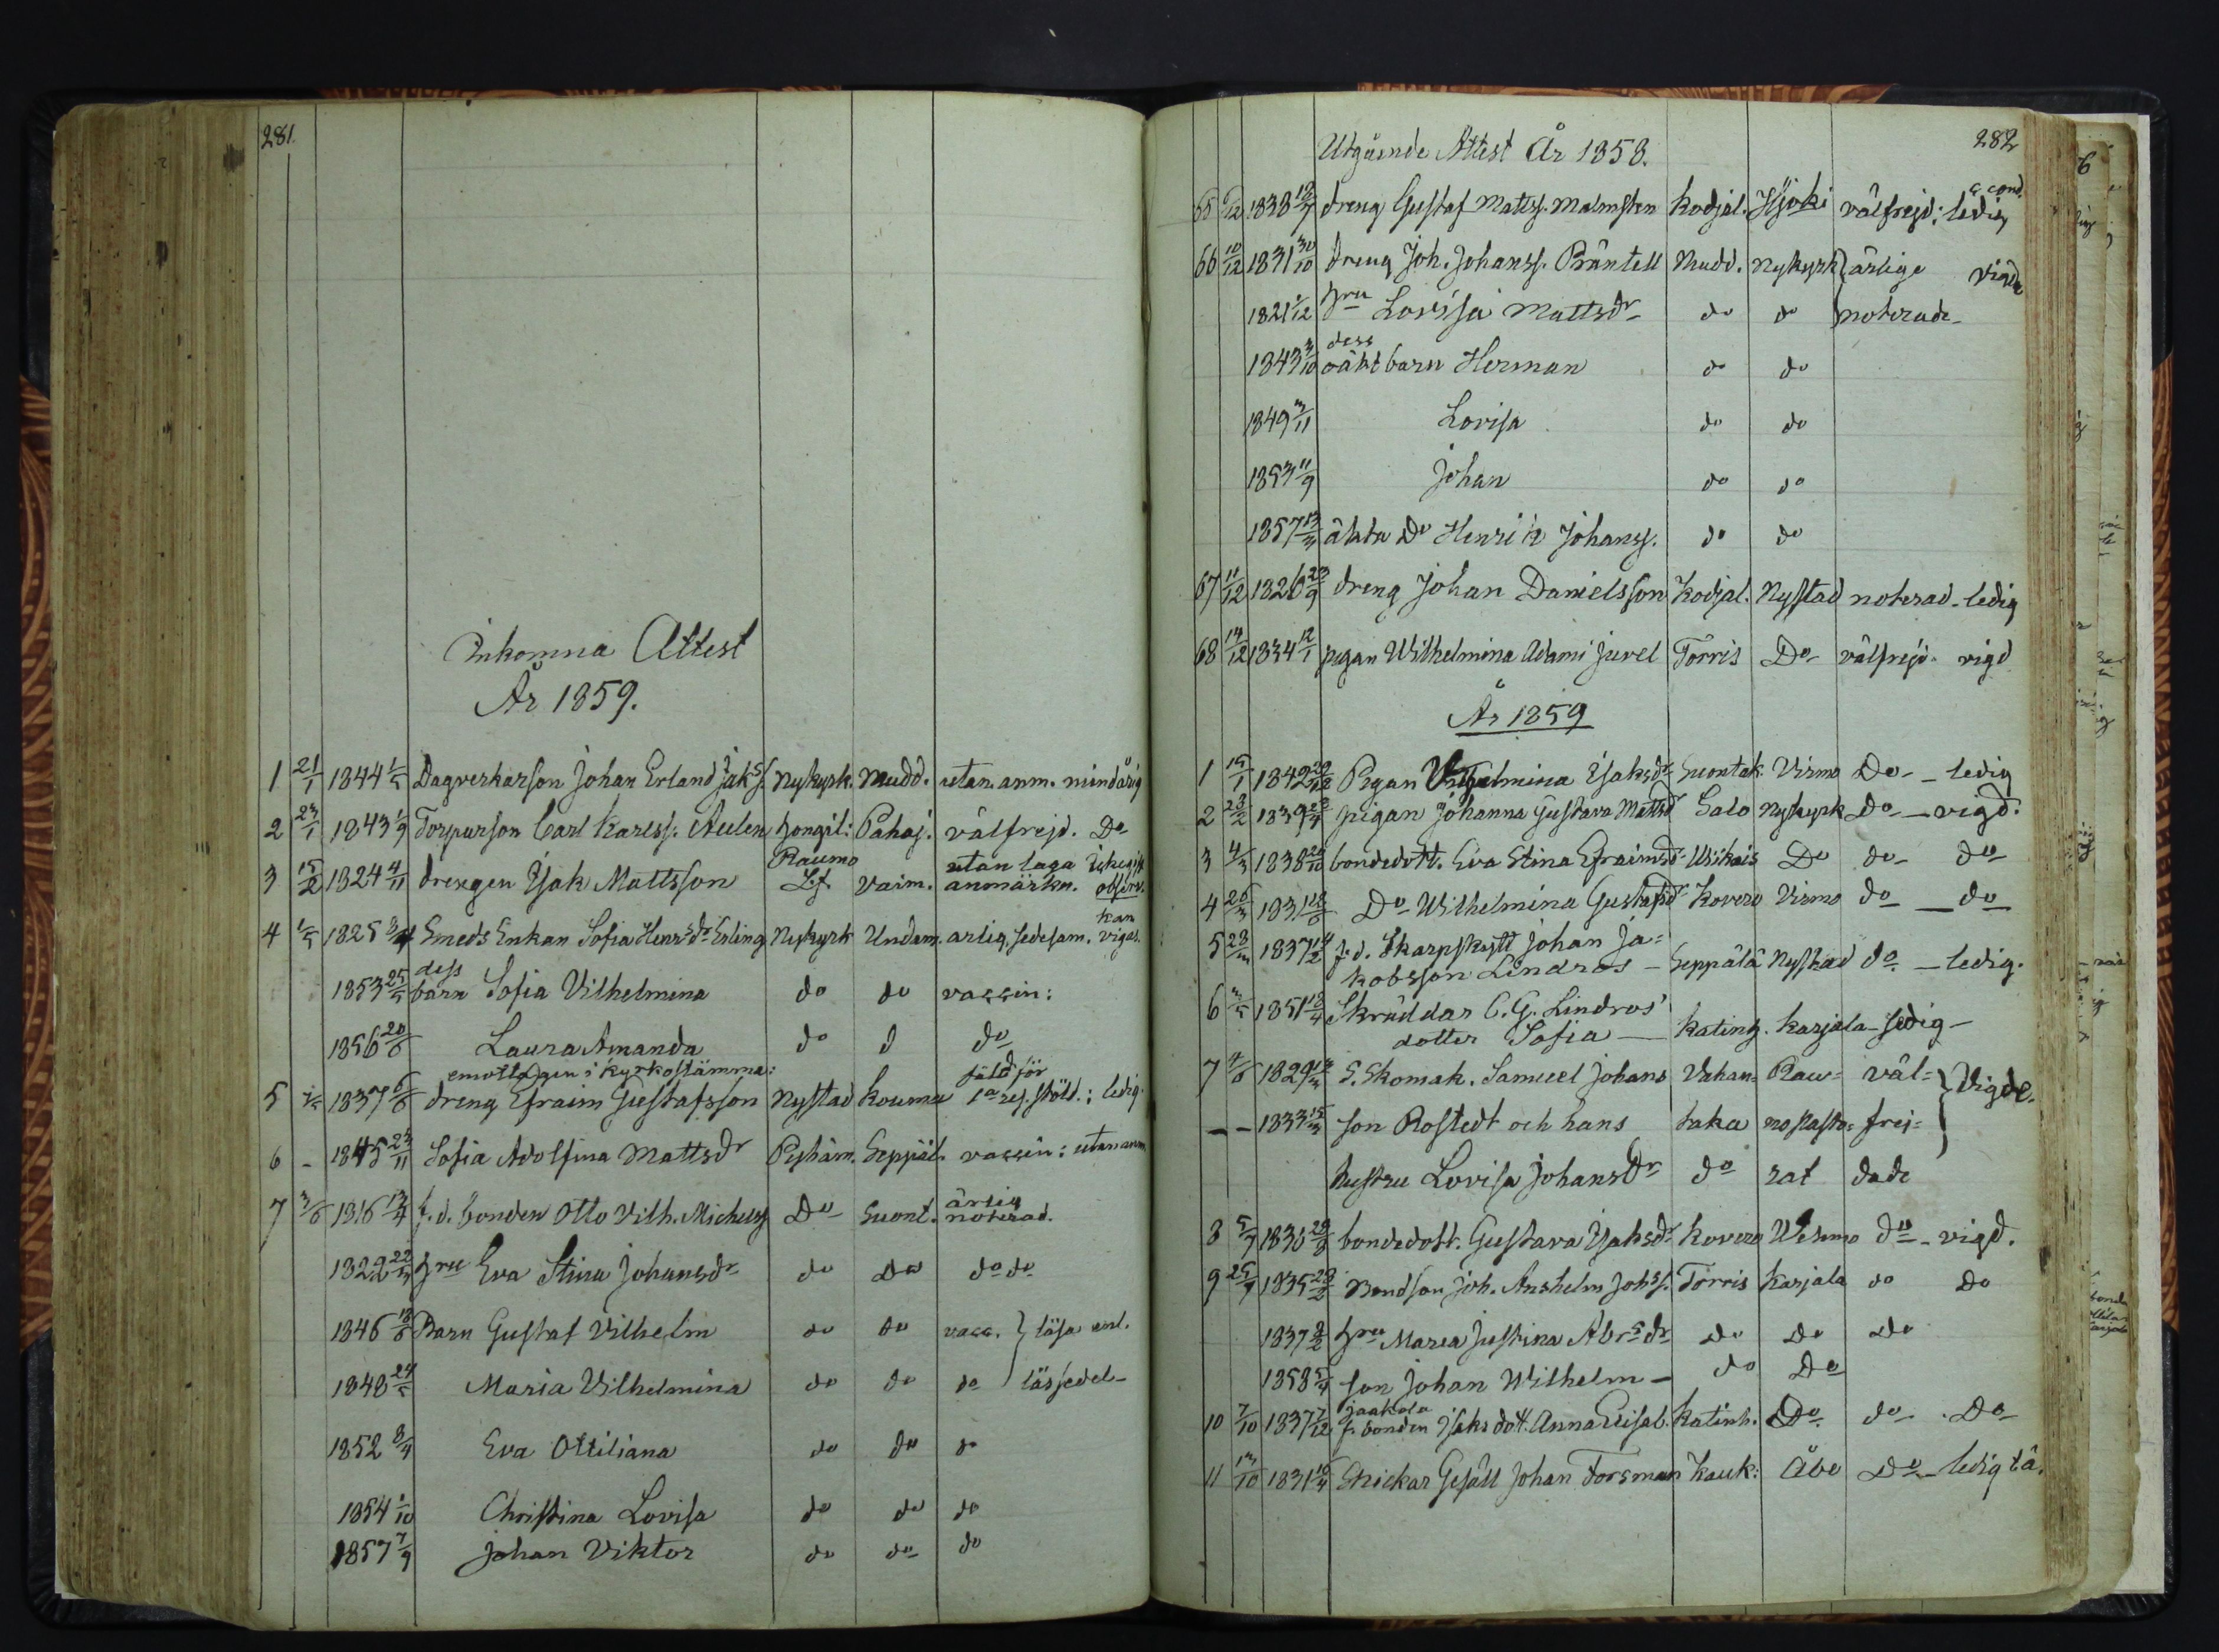 281.
Inkomna Attest
År 1859.
1 21/1 1844 1/5 Dagverkarson Johan Erland Isaks S. Nykyrk. Mudd. utan anm. mindårig
2 23/1 1843 1/9 Torparson Carl Karlss. Aulen hongil: Pahaj. välfrejd. Do
Raumo utan laga
3 15/2 1824 4/11 drengen Isak Mattsson L.f. Vaim. anmärkn. observ.
kan
4 1/5 1825 Smeds Enkan Sofia Henrsdr Erling Nykyrk Undam. ärlig, sedesam. vigas.
dess
1853 25/5 barn Sofia Vilhelmina do do vaccin:
1856 20/6 Laura Amanda do d do
emottagen i kyrkostämma: fäld för
5 1837 6/6 dreng Efraim Gustafsson Nystad Kouma 1a res. stöld.; ledig.
6 - 1845 23/11 Sofia Adolfina Mattsdr Pyhäm. Seppäl. vaccin: utan anm
ärlig
7 3/6 1816 13/4 f.d. bonden Otto Vilh. Michelss Do Suont. noterad.
1822 22/3 hru Eva Stina Johansdr do Do do do
1846 18/6 Barn Gustaf Vilhelm do do vacc. } läsa enl.
1848 24/5 Maria Vilhelmina do do do läsjedel
1852 8/4 Eva Ottiliana do do do
1854 1/10 Christina Lovisa do do do
1857 7/9 Johan Viktor do do do
282
Utgående Attest År 1858.
a cond.
65 6/12 1838 dreng Gustaf Mattss. Malmsten Kodjal. Hjoki välfrejd: ledig
66 10/12 1831 30/10 dreng Joh. Johanss. Präntell Mudd. Nykyrk ärlige vigde
1821 1/12 hru Lovisa Mattsdr do do noterade
dess
1843 3/10 oäkt barn Herman do do
1849 3/11 Lovisa do do
1853 11/9 Johan do do
1857 13/3 äkta Do Henrik Johanss. do do
67 11/12 1826 23/9 dreng Johan Danielsson Kodjal. Nystad noterad. ledig
68 14/12 1834 12/1 pigan Wilhelmina Adami Juvel Torris Do välfrejd. vigd
År 1859
1 15/1 1842 22/12 Pigan Vilhelmina Isaksdr Suontak. Virmo Do - ledig
2 28/2 1839 pigan Johanna Gustava Mattsd Salo Nykyrk Do - vigd.
3 4/3 1838 20/10 bondedott. Eva Stina Efraimsdr Wiikais Do do do
4 26/3 1831 28/6 Do Wilhelmina Gustafsd Kovero Virmo do - do
5 28/3 1837 14/2 f.d. Skarpskytt Johan Ja=
kobsson Lindros - Seppälä Nystad do. - ledig.
6 3/5 1851 18/4 Skräddar C.G. Lindros'
dotter Sofia - Katinh. Karjala - ledig -
7 4/6 1829 S. Skomak. Samuel Johans Vahan= Rau= väl= } Vigde.
- - 1833 15/3 son Rostedt och hans taka mo Pasto= frej=
hustru Lovisa Johansdr do rat dade
8 5/9 1836 29/8 bondedott. Gustava Isaksdr Kovero Wirmo do - vigd.
9 25/9 1835 28/2 Bondson Joh. Anshelm Johss. Torris Karjala do Do
1837 2/2 hru Maria Justina Abrsdr do Do Do
1858 5/4 son Johan Wilhelm - do Do
Jaakola
10 7/10 1837 7/12 f. bonden Isaks dott. Anna Elisab. Katinh. Do do . Do
11 13/10 1831 Snickar Gesäll Johan Forsman Kauk: Åbo Do - ledig